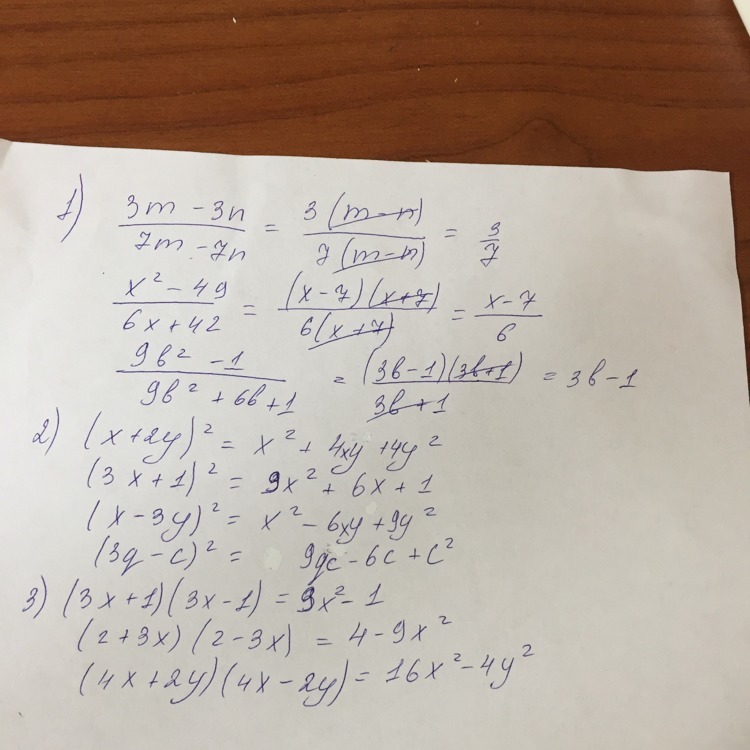 1) (3m - 3n)/(7m - 7n) = 3(m - n)/7(m - n) = 3/7
(x² - 49)/(6x + 42) = (x - 7)(x + 7)/6(x + 7) = (x - 7)/6
(9b² - 1)/(9b² + 6b + 1) = (3b - 1)(3b + 1)/(3b + 1) = 3b - 1
2) (x + 2y)² = x² + 4xy + 4y²
(3x + 1)² = 9x² + 6x + 1
(x - 3y)² = x² - 6xy + 9y²
(3q - c)² = 9qc - 6c + c²
3) (3x + 1)(3x - 1) = 9x² - 1
(2 + 3x)(2 - 3x) = 4 - 9x²
(4x + 2y)(4x - 2y) = 16x² - 4y²